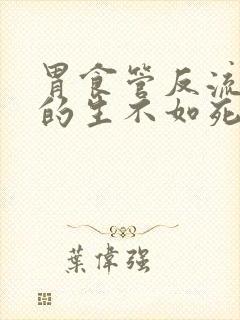 胃食管反流
的生不如死
葉偉强